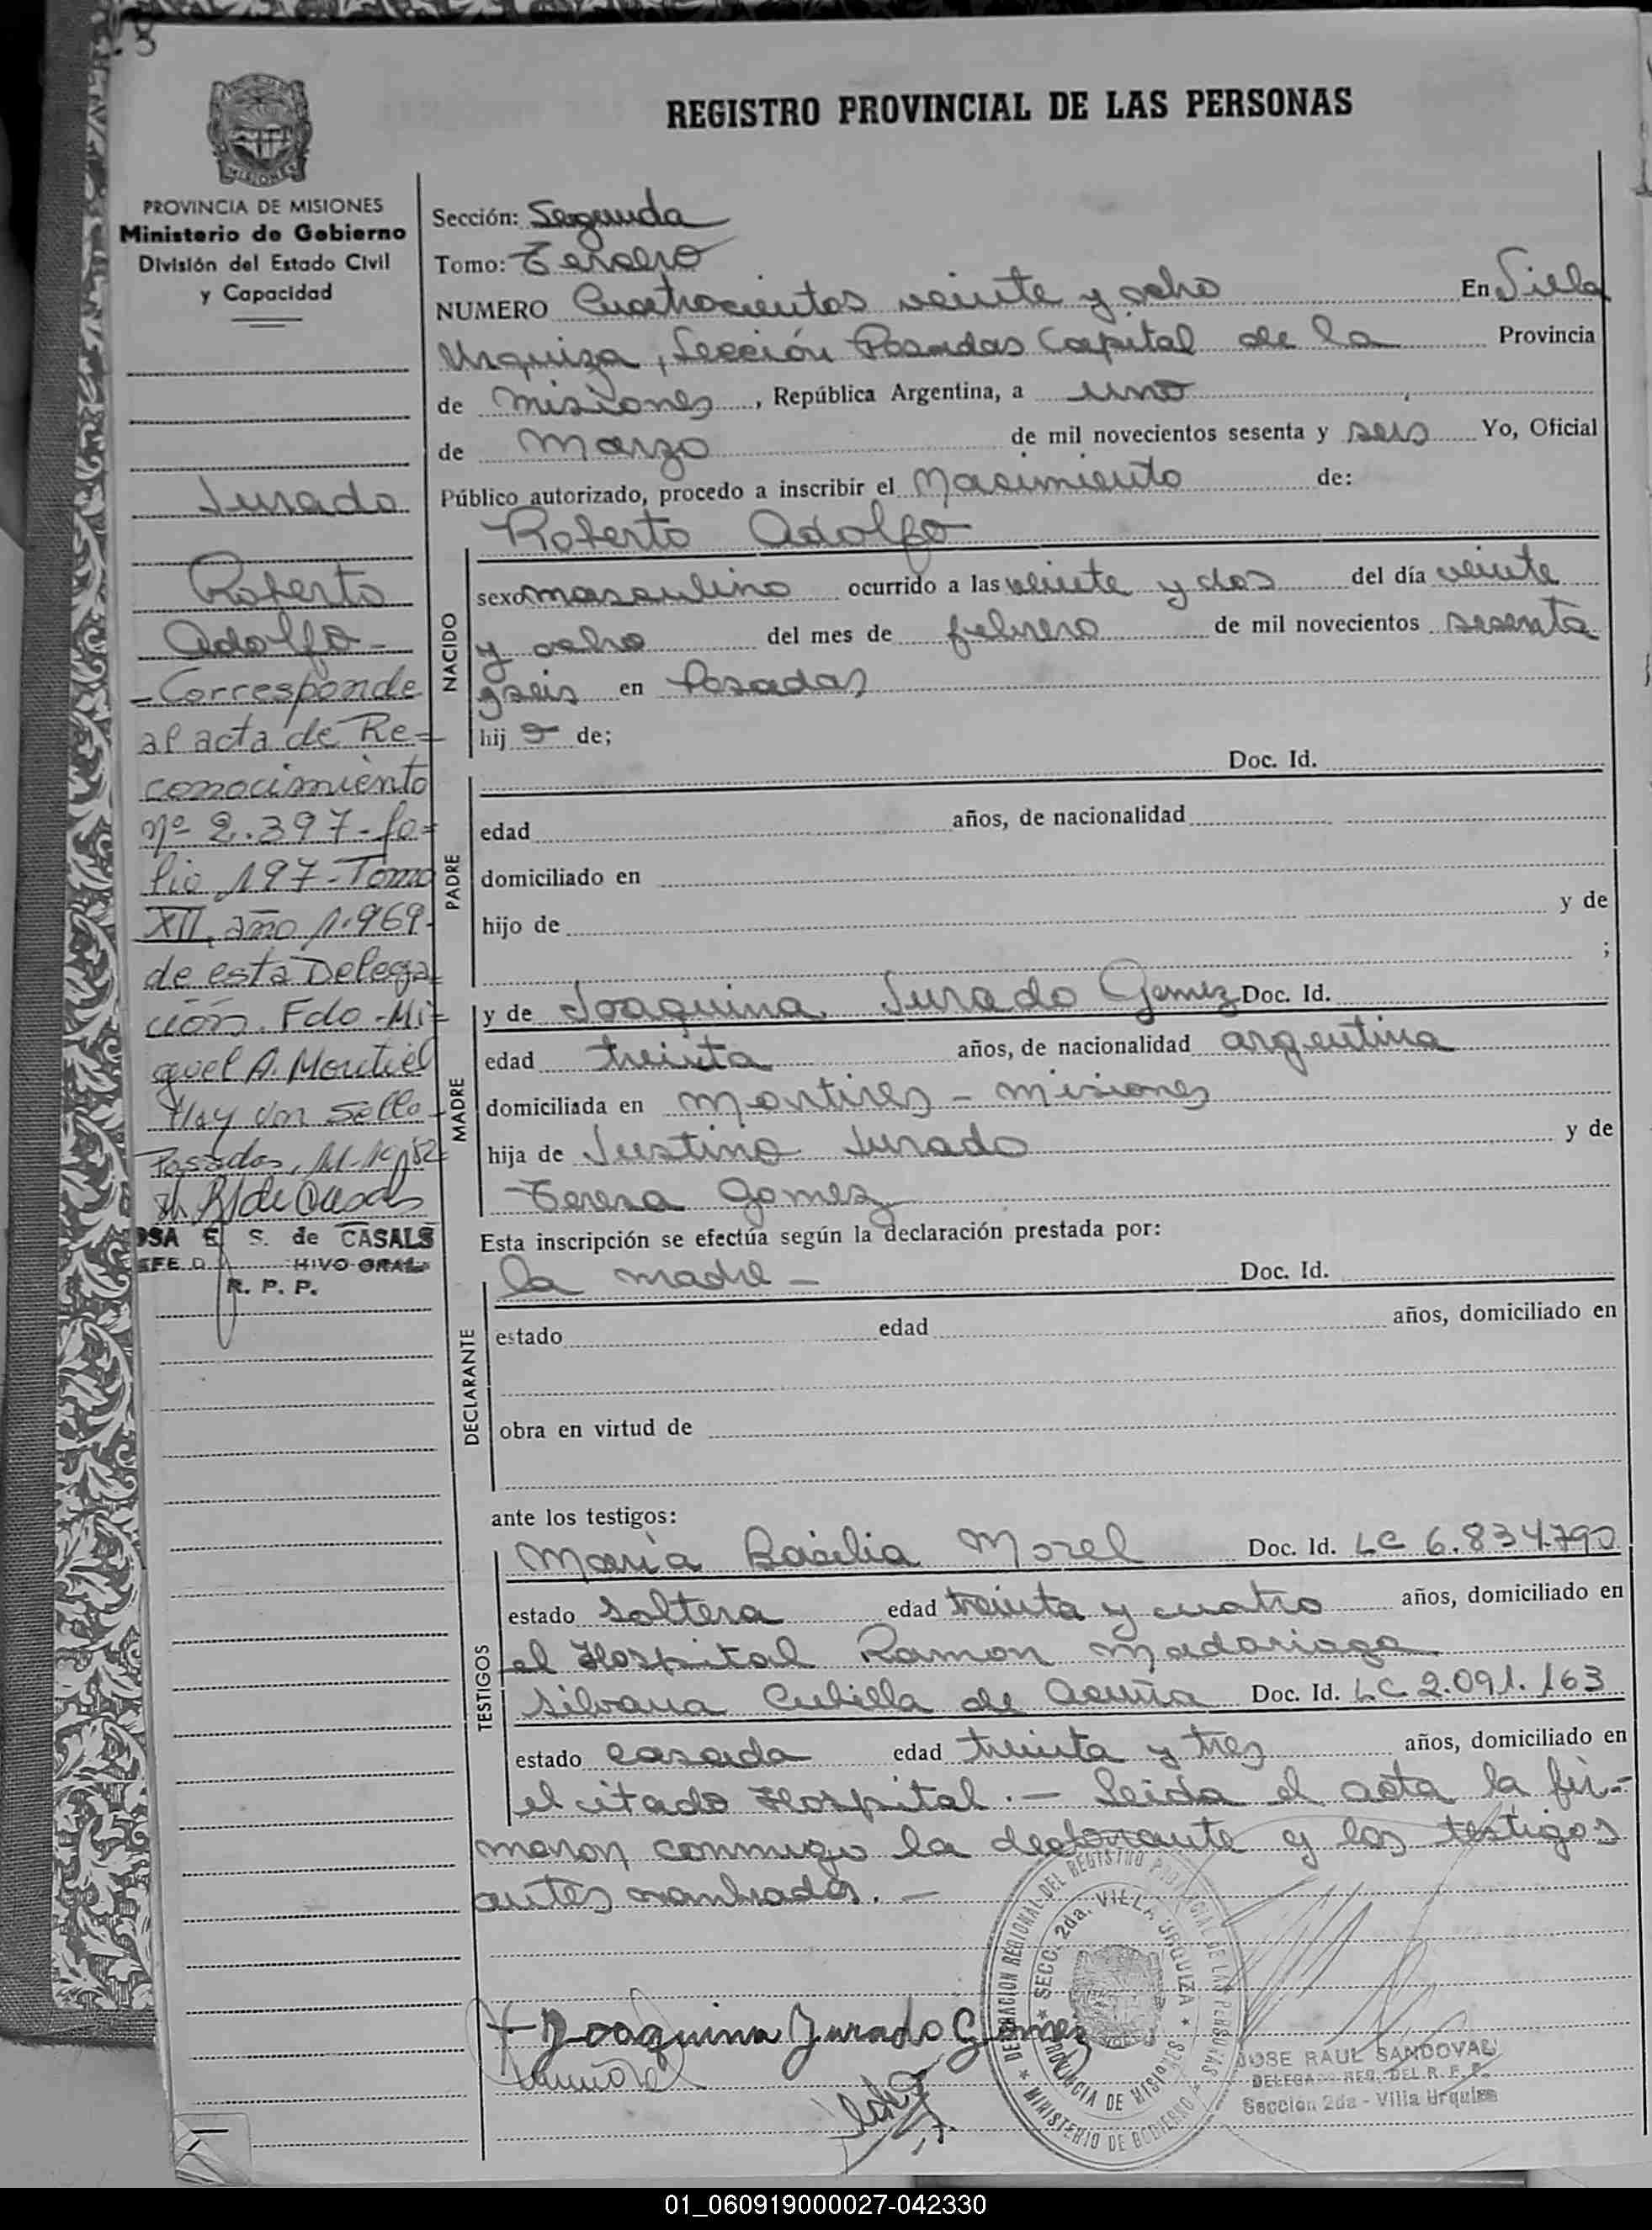 8
MISIONES
PROVINCIA DE MISIONES
Ministerio de Gobierno
División del Estado Civil
y Capacidad
Jurado
Roberto
Adolfo -
- Corresponde
al acta de Re-
conocimiento
nº 2.397 - fo-
lio 197 - Tomo
XII, año 1.969-
de esta Delega-
ción. Fdo - Mi-
guel A. Montiel
Hay un sello -
Posadas,
OSA E. S. de CASALS
R. P. P.
REGISTRO PROVINCIAL DE LAS PERSONAS
Sección: Segunda
Tomo: Tercero
NUMERO Cuatrocientos veinte y ocho En Villa
Urquiza, Sección Posadas Capital de la Provincia
de Misiones, República Argentina, a uno
de Marzo de mil novecientos sesenta y seis Yo, Oficial
Público autorizado, procedo a inscribir el Nacimiento de:
Roberto Adolfo
NACIDO
sexo masculino ocurrido a las veinte y dos del día veinte
y ocho del mes de febrero de mil novecientos sesenta
y seis en Posadas
hijo de;
PADRE
Doc. Id.
edad años, de nacionalidad
domiciliado en
hijo de y de
;
MADRE
y de Joaquina Jurado Gomez Doc. Id.
edad treinta años, de nacionalidad argentina
domiciliada en Martires - Misiones
hija de Justino Jurado y de
Teresa Gomez
Esta inscripción se efectúa según la declaración prestada por:
DECLARANTE
la madre - Doc. Id.
estado edad años, domiciliado en
obra en virtud de
ante los testigos:
TESTIGOS
Maria Basilia Morel Doc. Id. LC 6.834.790
estado soltera edad treinta y cuatro años, domiciliado en
el Hospital Ramon Madariaga
Silvana Cubilla de Acuña Doc. Id. LC 2.091.163
estado casada edad treinta y tres años, domiciliado en
el citado Hospital. - Leida el acta la fir-
maron conmigo la declarante y los testigos
antes nombrados. -
Joaquina Jurado Gomez
DELEGACION REGIONAL DEL REGISTRO PROVINCIAL DE LAS PERSONAS
★ MINISTERIO DE GOBIERNO ★
★ SECC. 2da. VILLA URQUIZA ★
PROVINCIA DE MISIONES
JOSE RAUL SANDOVAL
DELEGADO REG. DEL R. P. P.
Sección 2da - Villa Urquiza
01_060919000027-042330